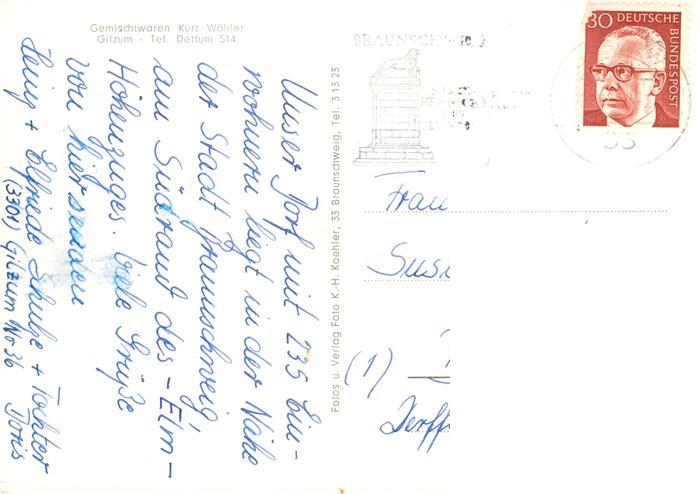 Gemischtwaren Kurt Wöhler
Gilzum - Tel. Dettum 514
Unser Dorf mit 235 Ein-
wohnern liegt in der Nähe
der Stadt Braunschweig
am Südrand des - Elm -
Höhenzuges. Viele Grüße
von hier senden
Heinz + Elfriede Schulze + Tochter
(3301) Gilzum No 36 Doris
Fotos u. Verlag Foto K.-H. Koehler, 33 Braunschweig, Tel. 3 13 23
BRAUNSCHW
30 DEUTSCHE
BUNDESPOST
33
Frau
Susi
(1)